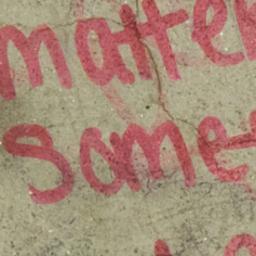 matter
same